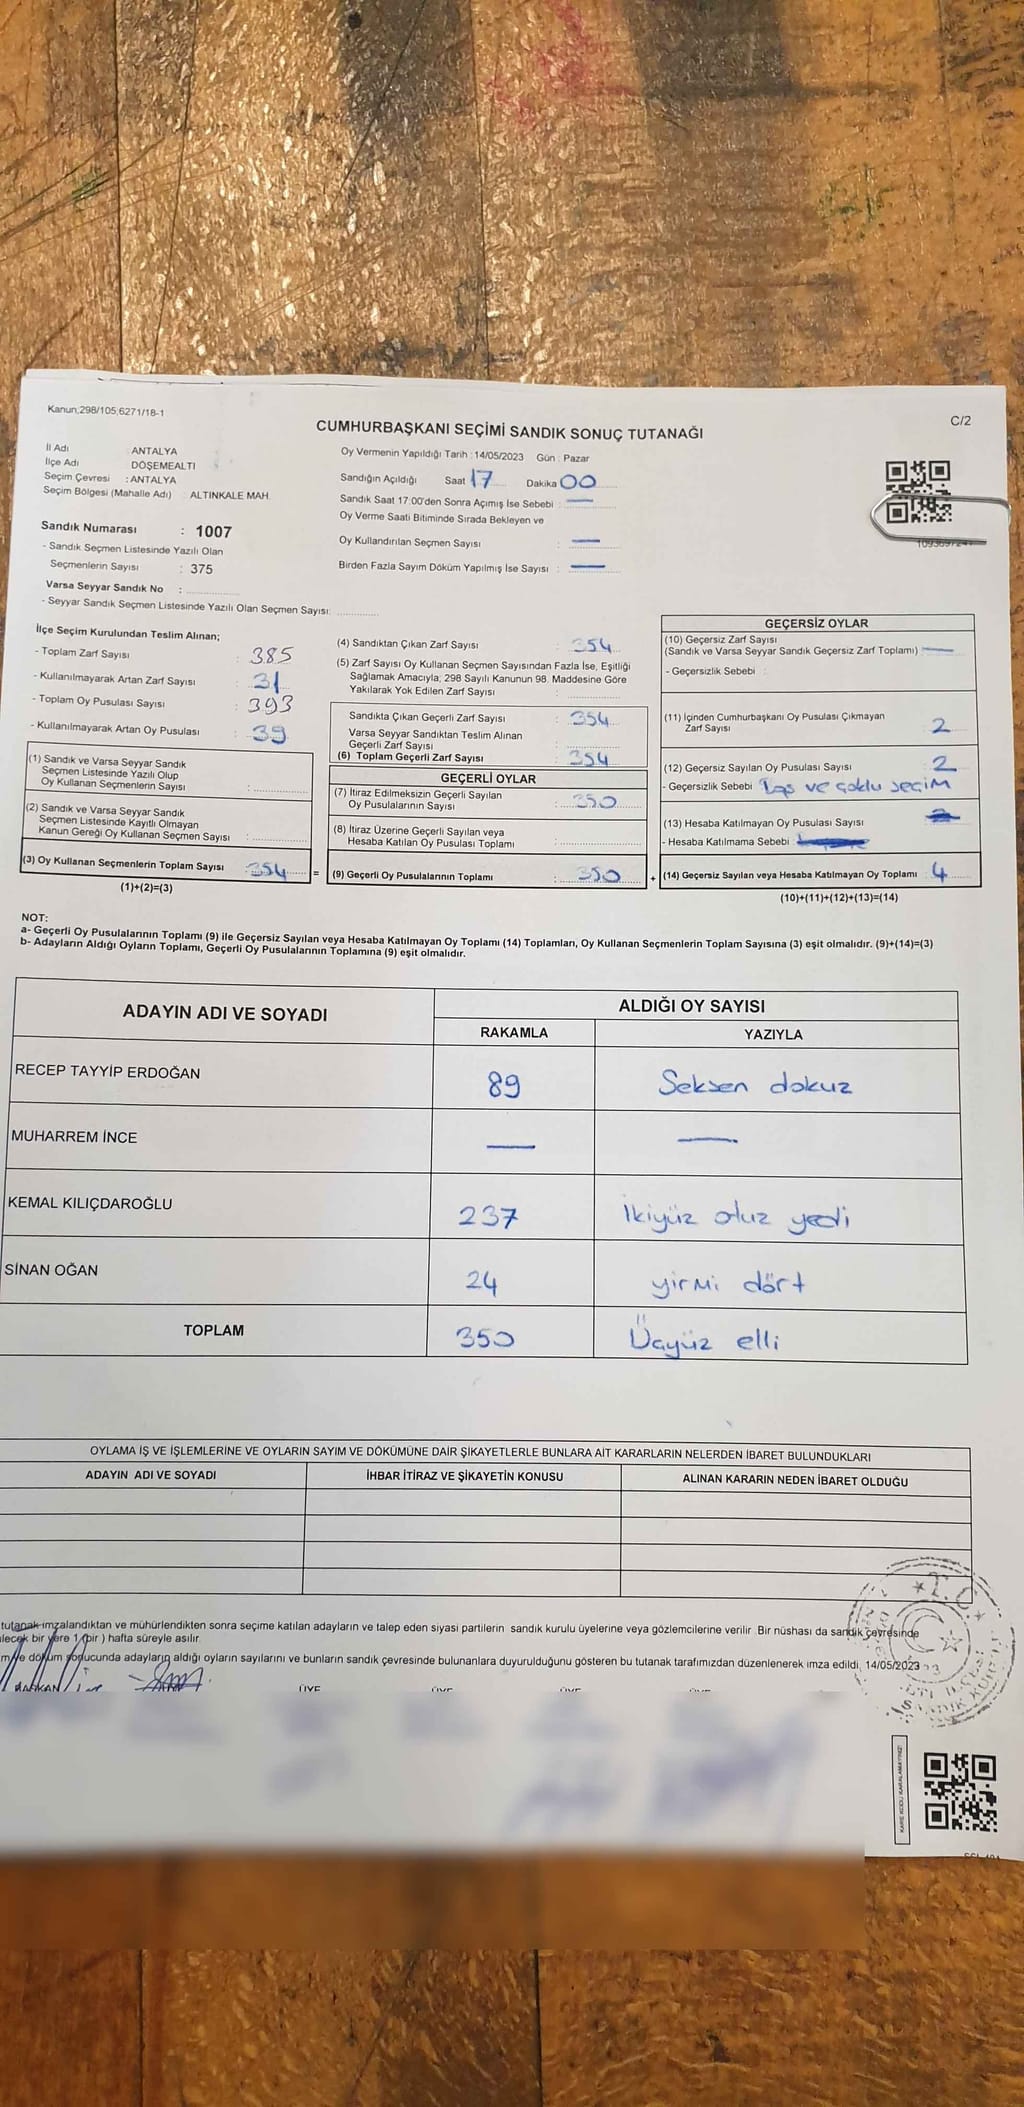 Kanun;298/105;6271/18-1
C/2
CUMHURBAŞKANI SEÇİMİ SANDIK SONUÇ TUTANAĞI
İl Adı : ANTALYA
İlçe Adı DÖŞEMEALTI
Seçim Çevresi : ANTALYA
Seçim Bölgesi (Mahalle Adı) ALTINKALE MAH.
Sandık Numarası : 1007
- Sandık Seçmen Listesinde Yazılı Olan
Seçmenlerin Sayısı : 375
Varsa Seyyar Sandık No :
- Seyyar Sandık Seçmen Listesinde Yazılı Olan Seçmen Sayısı:
Oy Vermenin Yapıldığı Tarih : 14/05/2023 Gün : Pazar
Sandığın Açıldığı Saat 17 Dakika 00
Sandık Saat 17:00'den Sonra Açımış İse Sebebi : —
Oy Verme Saati Bitiminde Sırada Bekleyen ve
Oy Kullandırılan Seçmen Sayısı : —
Birden Fazla Sayım Döküm Yapılmış İse Sayısı : —
İlçe Seçim Kurulundan Teslim Alınan;
- Toplam Zarf Sayısı : 385
- Kullanılmayarak Artan Zarf Sayısı : 31
- Toplam Oy Pusulası Sayısı : 393
- Kullanılmayarak Artan Oy Pusulası : 39
(1) Sandık ve Varsa Seyyar Sandık
Seçmen Listesinde Yazılı Olup
Oy Kullanan Seçmenlerin Sayısı :
(2) Sandık ve Varsa Seyyar Sandık
Seçmen Listesinde Kayıtlı Olmayan
Kanun Gereği Oy Kullanan Seçmen Sayısı :
(3) Oy Kullanan Seçmenlerin Toplam Sayısı : 354 =
(1)+(2)=(3)
(4) Sandıktan Çıkan Zarf Sayısı : 354
(5) Zarf Sayısı Oy Kullanan Seçmen Sayısından Fazla İse, Eşitliği
Sağlamak Amacıyla; 298 Sayılı Kanunun 98. Maddesine Göre
Yakılarak Yok Edilen Zarf Sayısı :
Sandıkta Çıkan Geçerli Zarf Sayısı : 354
Varsa Seyyar Sandıktan Teslim Alınan
Geçerli Zarf Sayısı :
(6) Toplam Geçerli Zarf Sayısı : 354
GEÇERLİ OYLAR
(7) İtiraz Edilmeksizin Geçerli Sayılan
Oy Pusulalarının Sayısı : 350
(8) İtiraz Üzerine Geçerli Sayılan veya
Hesaba Katılan Oy Pusulası Toplamı :
(9) Geçerli Oy Pusulalarının Toplamı : 350 +
GEÇERSİZ OYLAR
(10) Geçersiz Zarf Sayısı
(Sandık ve Varsa Seyyar Sandık Geçersiz Zarf Toplamı) —
- Geçersizlik Sebebi :
(11) İçinden Cumhurbaşkanı Oy Pusulası Çıkmayan
Zarf Sayısı : 2
(12) Geçersiz Sayılan Oy Pusulası Sayısı : 2
- Geçersizlik Sebebi : Boş ve çoklu seçim
(13) Hesaba Katılmayan Oy Pusulası Sayısı :
- Hesaba Katılmama Sebebi :
(14) Geçersiz Sayılan veya Hesaba Katılmayan Oy Toplamı : 4
(10)+(11)+(12)+(13)=(14)
NOT:
a- Geçerli Oy Pusulalarının Toplamı (9) ile Geçersiz Sayılan veya Hesaba Katılmayan Oy Toplamı (14) Toplamları, Oy Kullanan Seçmenlerin Toplam Sayısına (3) eşit olmalıdır. (9)+(14)=(3)
b- Adayların Aldığı Oyların Toplamı, Geçerli Oy Pusulalarının Toplamına (9) eşit olmalıdır.
ADAYIN ADI VE SOYADI ALDIĞI OY SAYISI
RAKAMLA YAZIYLA
RECEP TAYYİP ERDOĞAN 89 Seksen dokuz
MUHARREM İNCE — —
KEMAL KILIÇDAROĞLU 237 İkiyüz otuz yedi
SİNAN OĞAN 24 yirmi dört
TOPLAM 350 Üçyüz elli
OYLAMA İŞ VE İŞLEMLERİNE VE OYLARIN SAYIM VE DÖKÜMÜNE DAİR ŞİKAYETLERLE BUNLARA AİT KARARLARIN NELERDEN İBARET BULUNDUKLARI
ADAYIN ADI VE SOYADI İHBAR İTİRAZ VE ŞİKAYETİN KONUSU ALINAN KARARIN NEDEN İBARET OLDUĞU
tutanak imzalandıktan ve mühürlendikten sonra seçime katılan adayların ve talep eden siyasi partilerin sandık kurulu üyelerine veya gözlemcilerine verilir. Bir nüshası da sandık çevresinde
lecek bir yere 1 (bir ) hafta süreyle asılır.
m ve döküm sonucunda adayların aldığı oyların sayılarını ve bunların sandık çevresinde bulunanlara duyurulduğunu gösteren bu tutanak tarafımızdan düzenlenerek imza edildi. 14/05/2023
BAŞKAN ÜYE ÜYE ÜYE ÜYE
T.C.
SANDIK KURULU
KARE KODU KARALAMAYINIZ!